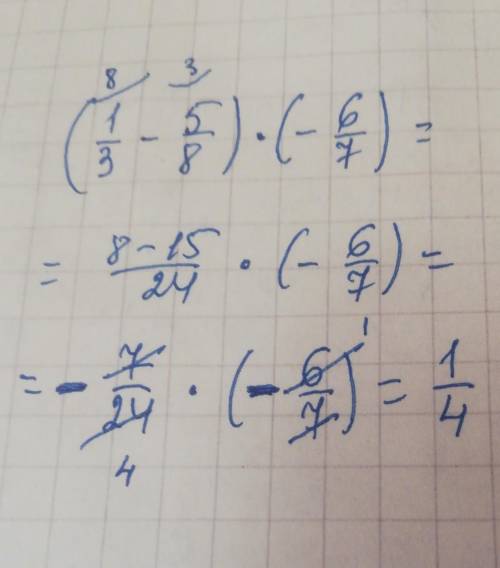 8 3
(1/3 - 5/8) · (- 6/7) =
= 8-15/24 · (- 6/7) =
= - 7/24 · (- 6/7) = 1/4
1
4